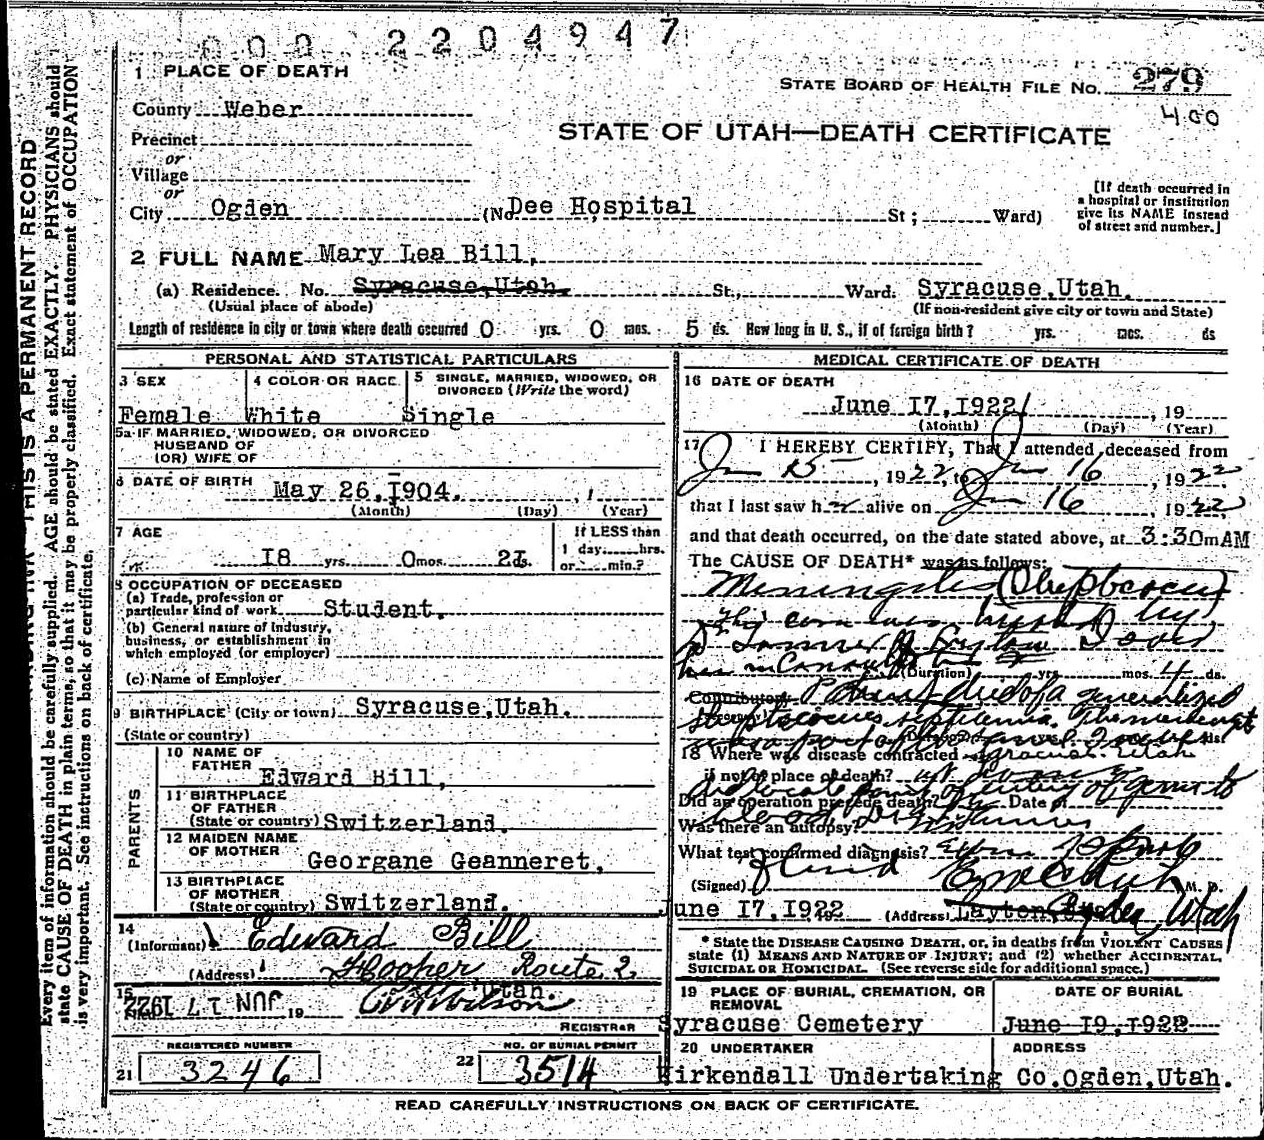 000 2204947
1 PLACE OF DEATH
STATE BOARD OF HEALTH FILE NO. 279
400
County Weber
STATE OF UTAH—DEATH CERTIFICATE
Precinct
or
Village
or
City Ogden (No Dee Hospital St; Ward)
[If death occurred in
a hospital or institution
give its NAME instead
of street and number.]
2 FULL NAME Mary Lea Bill,
(a) Residence. No. Syracuse,Utah. St., Ward. Syracuse,Utah.
(Usual place of abode) (If non-resident give city or town and State)
Length of residence in city or town where death occurred 0 yrs. 0 mos. 5 ds. How long in U. S., if of foreign birth? yrs. mos. ds
PERSONAL AND STATISTICAL PARTICULARS
3 SEX 4 COLOR OR RACE 5 SINGLE, MARRIED, WIDOWED, OR
DIVORCED (Write the word)
Female White Single
5a IF MARRIED, WIDOWED, OR DIVORCED
HUSBAND OF
(OR) WIFE OF
6 DATE OF BIRTH May 26,1904.
(Month) (Day) (Year)
7 AGE If LESS than
18 yrs. 0 mos. 21 ds. 1 day, hrs.
or min.?
8 OCCUPATION OF DECEASED
(a) Trade, profession or
particular kind of work Student.
(b) General nature of Industry,
business, or establishment in
which employed (or employer)
(c) Name of Employer
9 BIRTHPLACE (City or town) Syracuse,Utah.
(State or country)
PARENTS
10 NAME OF
FATHER Edward Bill,
11 BIRTHPLACE
OF FATHER
(State or country) Switzerland.
12 MAIDEN NAME
OF MOTHER Georgane Geanneret.
13 BIRTHPLACE
OF MOTHER
(State or country) Switzerland.
14
(Informant) Edward Bill
(Address) Hooper Route 2
Utah.
15 JUN 17 1922 19 Wilson
REGISTRAR
REGISTERED NUMBER NO. OF BURIAL PERMIT
21 3246 22 3514
MEDICAL CERTIFICATE OF DEATH
16 DATE OF DEATH
June 17,1922 , 19
(Month) (Day) (Year)
17 I HEREBY CERTIFY, That I attended deceased from
Jun 15 , 1922, to Jun 16 , 1922
that I last saw her alive on Jun 16 1922
and that death occurred, on the date stated above, at 3:30m AM
The CAUSE OF DEATH* was as follows:
Meningitis (Streptococcus)
(Duration) yrs. mos. 4 ds.
Contributory Patient died of a generalized
streptococcus septicemia. The meningitis
was a part of the
18 Where was disease contracted Syracuse Utah
if not at place of death?
did locate point of entry of germ to
blood
Did an operation precede death? Date of
Was there an autopsy?
What test confirmed diagnosis?
(Signed) M. D.
June 17,1922 (Address) Layton, Ogden, Utah
* State the DISEASE CAUSING DEATH, or, in deaths from VIOLENT CAUSES
state (1) MEANS AND NATURE OF INJURY; and (2) whether ACCIDENTAL,
SUICIDAL OR HOMICIDAL. (See reverse side for additional space.)
19 PLACE OF BURIAL, CREMATION, OR
REMOVAL DATE OF BURIAL
Syracuse Cemetery June 19,1922
20 UNDERTAKER ADDRESS
Kirkendall Undertaking Co.Ogden,Utah.
READ CAREFULLY INSTRUCTIONS ON BACK OF CERTIFICATE.
THIS IS A PERMANENT RECORD
Every item of information should be carefully supplied. AGE should be stated EXACTLY. PHYSICIANS should
state CAUSE OF DEATH in plain terms, so that it may be properly classified. Exact statement of OCCUPATION
is very important. See instructions on back of certificate.